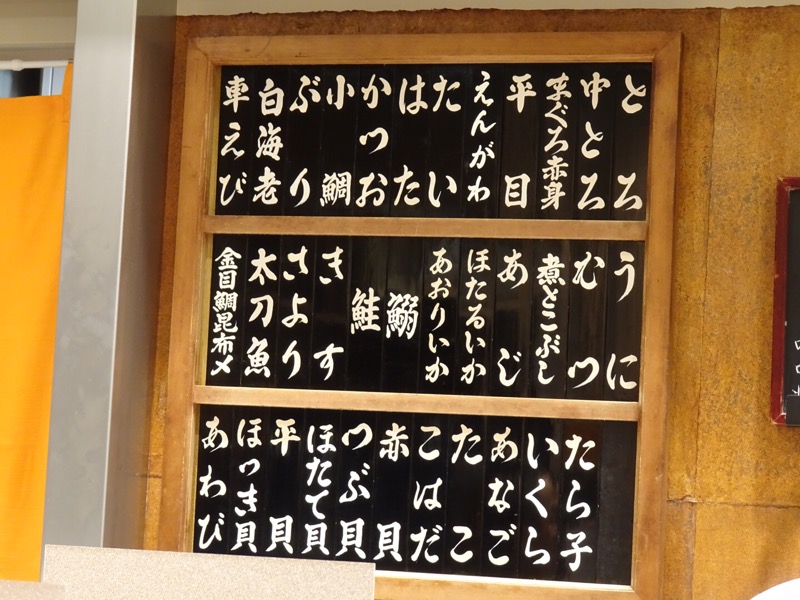 とろ
中とろ
まぐろ赤身
平目
えんがわ
たい
はた
かつお
小鯛
ぶり
白海老
車えび
うに
むつ
煮とこぶし
あじ
ほたるいか
あおりいか
鰯
鮭
きす
さより
太刀魚
金目鯛昆布〆
たら子
いくら
あなご
たこ
こはだ
赤貝
つぶ貝
ほたて貝
平貝
ほっき貝
あわび